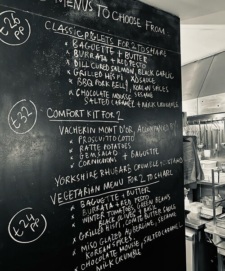 MENUS TO CHOOSE FROM
£26 PP
CLASSIC POULET FOR 2 TO SHARE
x BAGUETTE + BUTTER
x BURRATA + RED PESTO
x DILL CURED SALMON, BLACK GARLIC
x GRILLED HISPI
x BBQ PORK BELLY, KOREAN SPICES
x CHOCOLATE MOUSSE, SESAME
SALTED CARAMEL + MILK CRUMBLE
£32
COMFORT KIT FOR 2
VACHERIN MONT D'OR, ACCOMPANIED
x PROSCIUTTO COTTO
x RATTE POTATOES
x GEM SALAD
x CORNICHONS
+ BAGUETTE
YORKSHIRE RHUBARB CRUMBLE
£24 PP
VEGETARIAN MENU FOR 2 TO SHARE
x BAGUETTE + BUTTER
x BURRATA + GREEN PESTO
x WINTER TOMATOES
x GRILLED HISPI,
x MISO GLAZED AUBERGINE, SESAME
KOREAN SPICES
x CHOCOLATE MOUSSE, SALTED CARAMEL
MILK CRUMBLE